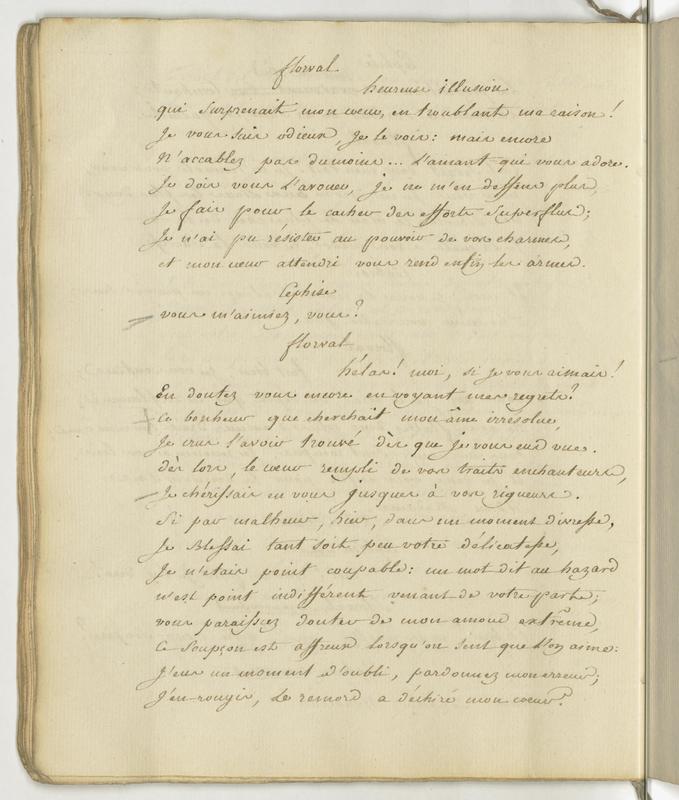 florval
heureuse illusion
qui surprenait mon coeur, en troublant ma raison!
Je vous suis odieux, Je le vois: mais encore
N'accablez pas dumoins... L'amant qui vous adore.
Je dois vous L'avouer, Je ne m'en deffens plus,
Je fais pour le cacher des efforts superflus;
Je n'ai pu résister au pouvoir de vos charmes,
et mon coeur attendri vous rend enfin les armes.
Cephise
vous m'aimiez, vous?
florval
hélas! moi, si Je vous aimais!
En doutez vous encore en voyant mes regrets?
Ce bonheur que cherchait mon âme irresolue,
Je crus l'avoir trouvé dès que Je vous eus vue.
dès lors, le coeur rempli de vos traits enchanteurs,
Je chérissais en vous jusques à vos rigueurs.
Si par malheur, hier, dans un moment divresse,
Je Blessai tant soit peu votre délicatesse,
Je n'etais point coupable: un mot dit au hazard
n'est point indifférent venant de votre parte;
vous paraissiez douter de mon amour extrême,
Ce soupçon est affreux lorsqu'on sent que l'on aime:
J'eus un moment d'oubli, pardonnez mon erreur;
J'en rougis, Le remord a déchiré mon coeur.